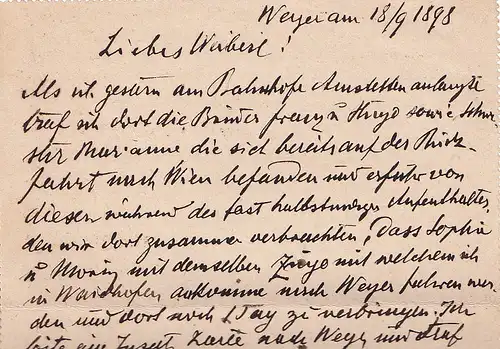 Weyer am 18/9 1898
Liebes Weiberl!
Als ich gestern am Bahnhofe Amstetten anlangte
traf ich dort die Brüder Franz u Hugo sowie Schwe
ster Marianne die sich bereits auf der Rück-
fahrt nach Wien befanden und erfuhr von
diesen während des fast halbstündigen Aufenthaltes,
den wir dort zusammen verbrachten, dass Sophie
u Moriz mit demselben Zuge mit welchem ich
in Waidhofen ankomme nach Weyer fahren wer
den und dort noch 1 Tag zu verbringen. Ich
löste eine Zusatz Karte nach Weyer und traf